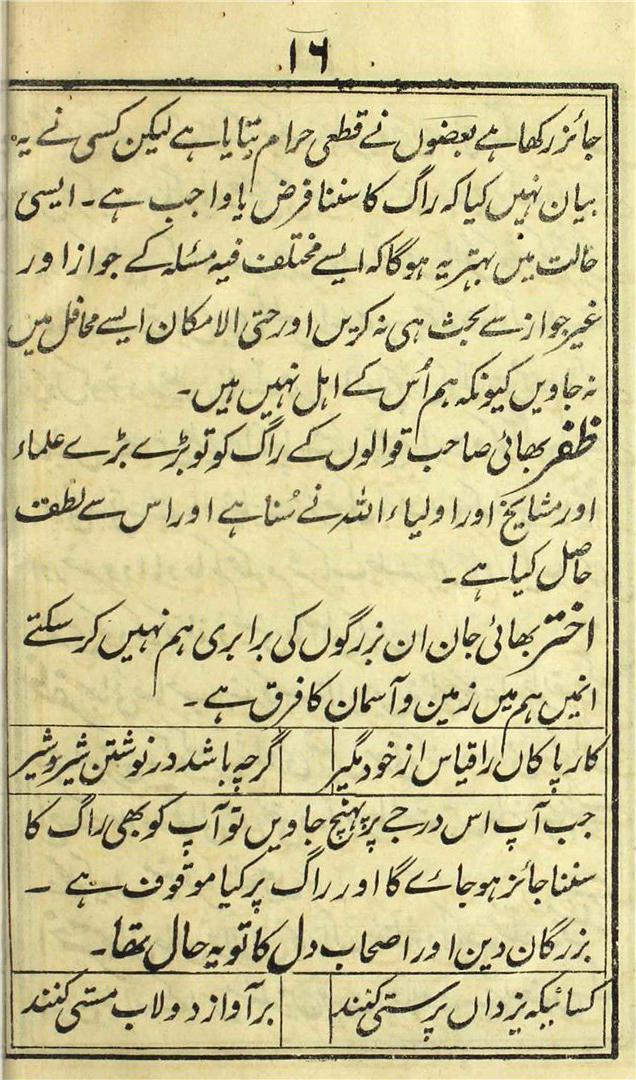 ۱۶
جائز رکھا ہے بعضوں نے قطعی حرام بتایا ہے لیکن کسی نے یہ
بیان نہیں کیا کہ راگ کا سننا فرض یا واجب ہے۔ ایسی
حالت میں بہتر یہ ہوگا کہ ایسے مختلف فیہ مسئلہ کے جواز اور
غیر جواز سے بحث ہی نہ کریں اور حتی الامکان ایسے محافل میں
نہ جاویں کیونکہ ہم اُس کے اہل نہیں ہیں۔
ظفر بھائی صاحب قوالوں کے راگ کو تو بڑے بڑے علماء
اور مشایخ اور اولیاء اللہ نے سُنا ہے اور اس سے لطف
حاصل کیا ہے۔
اختر بھائی جان ان بزرگوں کی برابری ہم نہیں کر سکتے
انمیں ہم میں زمین و آسمان کا فرق ہے۔
کار پاکاں را قیاس از خود مگیر گرچہ باشد در نوشتن شیر و شیر
جب آپ اس درجے پر پہنچ جاویں تو آپ کو بھی راگ کا
سننا جائز ہو جائے گا اور راگ پر کیا موقوف ہے ۔
بزرگان دین اور اصحاب دل کا تو یہ حال تھا۔
کسانیکہ یزداں پرستی کنند بر آواز دولاب مستی کنند